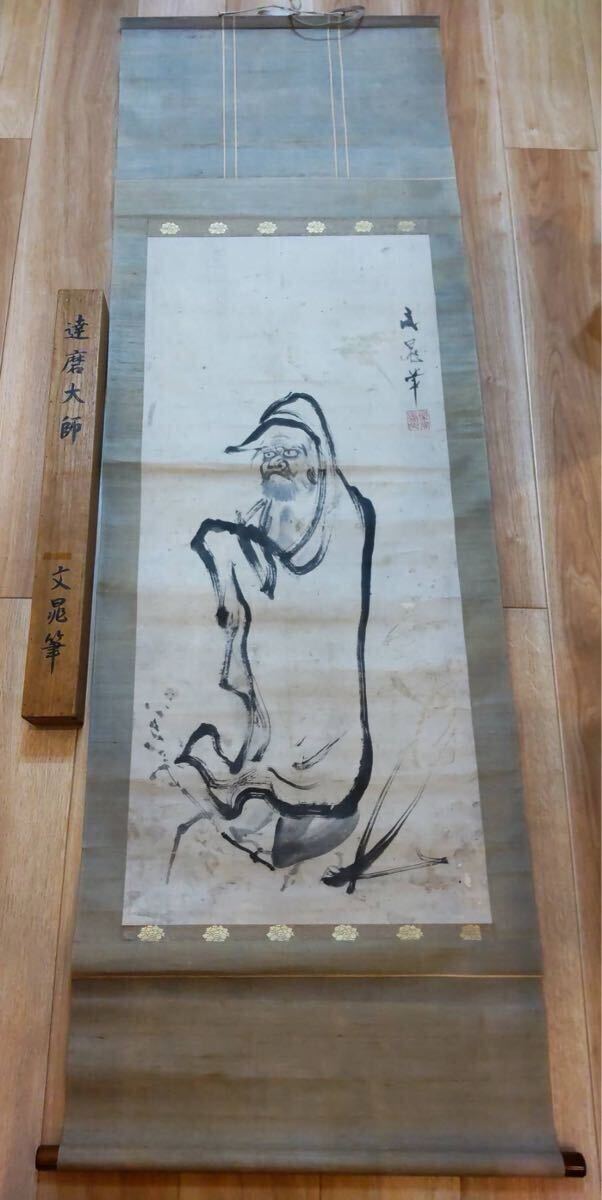 達磨大師
文晁筆
文晁筆